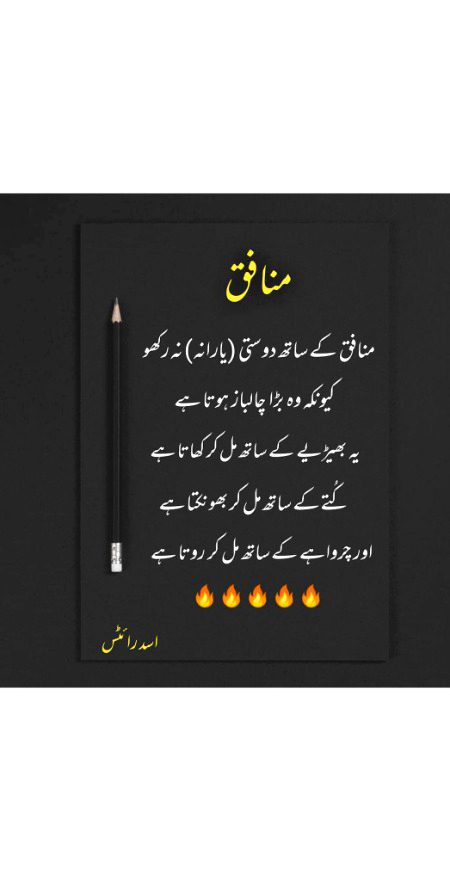 منافق
منافق کے ساتھ دوستی (یارانہ) نہ رکھو
کیونکہ وہ بڑا چالباز ہوتا ہے
یہ بھیڑیے کے ساتھ مل کر کھاتا ہے
کُتے کے ساتھ مل کر بھونکتا ہے
اور چرواہے کے ساتھ مل کر روتا ہے
🔥🔥🔥🔥🔥
اسد رائٹس